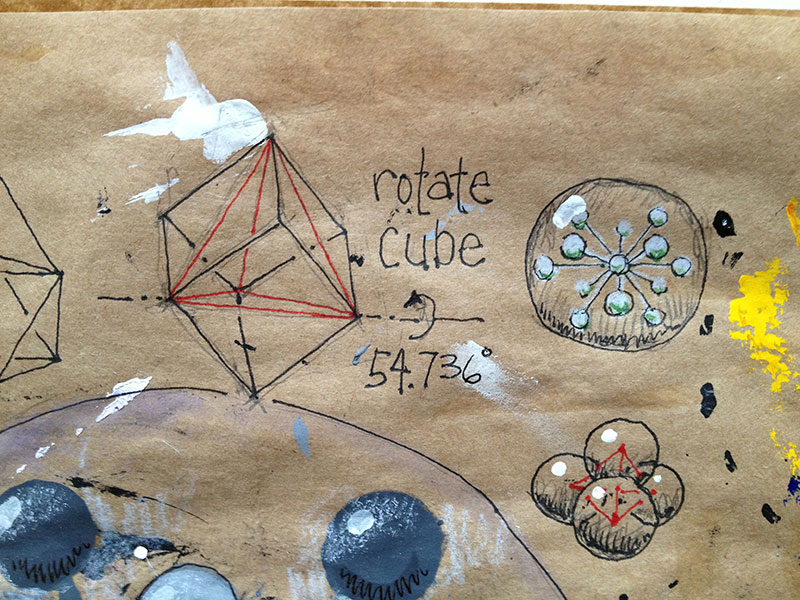 rotate
cube
54.736°